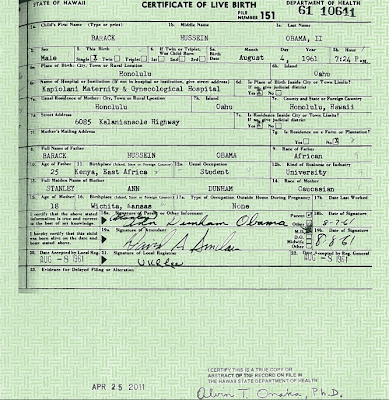 STATE OF HAWAII CERTIFICATE OF LIVE BIRTH DEPARTMENT OF HEALTH
FILE NUMBER 151 61 10641
1a. Child's First Name (Type or print) 1b. Middle Name 1c. Last Name
BARACK HUSSEIN OBAMA, II
2. Sex 3. This Birth 4. If Twin or Triplet, Was Child Born 5a. Birth Date Month Day Year 5b. Hour
Male Single Twin Triplet 1st 2nd 3rd August 4, 1961 7:24 P.M.
6a. Place of Birth: City, Town or Rural Location 6b. Island
Honolulu Oahu
6c. Name of Hospital or Institution (If not in hospital or institution, give street address) 6d. Is Place of Birth Inside City or Town Limits? If no, give judicial district
Kapiolani Maternity & Gynecological Hospital Yes No
7a. Usual Residence of Mother: City, Town or Rural Location 7b. Island 7c. County and State or Foreign Country
Honolulu Oahu Honolulu, Hawaii
7d. Street Address 7e. Is Residence Inside City or Town Limits? If no, give judicial district
6085 Kalanianaole Highway Yes No
7f. Mother's Mailing Address 7g. Is Residence on a Farm or Plantation?
Yes No
8. Full Name of Father 9. Race of Father
BARACK HUSSEIN OBAMA African
10. Age of Father 11. Birthplace (Island, State or Foreign Country) 12a. Usual Occupation 12b. Kind of Business or Industry
25 Kenya, East Africa Student University
13. Full Maiden Name of Mother 14. Race of Mother
STANLEY ANN DUNHAM Caucasian
15. Age of Mother 16. Birthplace (Island, State or Foreign Country) 17a. Type of Occupation Outside Home During Pregnancy 17b. Date Last Worked
18 Wichita, Kansas None
I certify that the above stated information is true and correct to the best of my knowledge. 18a. Signature of Parent or Other Informant Parent Other 18b. Date of Signature
Dunham Obama 8-7-61
I hereby certify that this child was born alive on the date and hour stated above. 19a. Signature of Attendant M.D. D.O. Midwife Other 19b. Date of Signature
David A Sinclair 8-8-61
20. Date Accepted by Local Reg. 21. Signature of Local Registrar 22. Date Accepted by Reg. General
AUG -8 1961 U K Lee AUG -8 1961
23. Evidence for Delayed Filing or Alteration
APR 25 2011
I CERTIFY THIS IS A TRUE COPY OR
ABSTRACT OF THE RECORD ON FILE IN
THE HAWAII STATE DEPARTMENT OF HEALTH
Alvin T. Onaka, Ph.D.